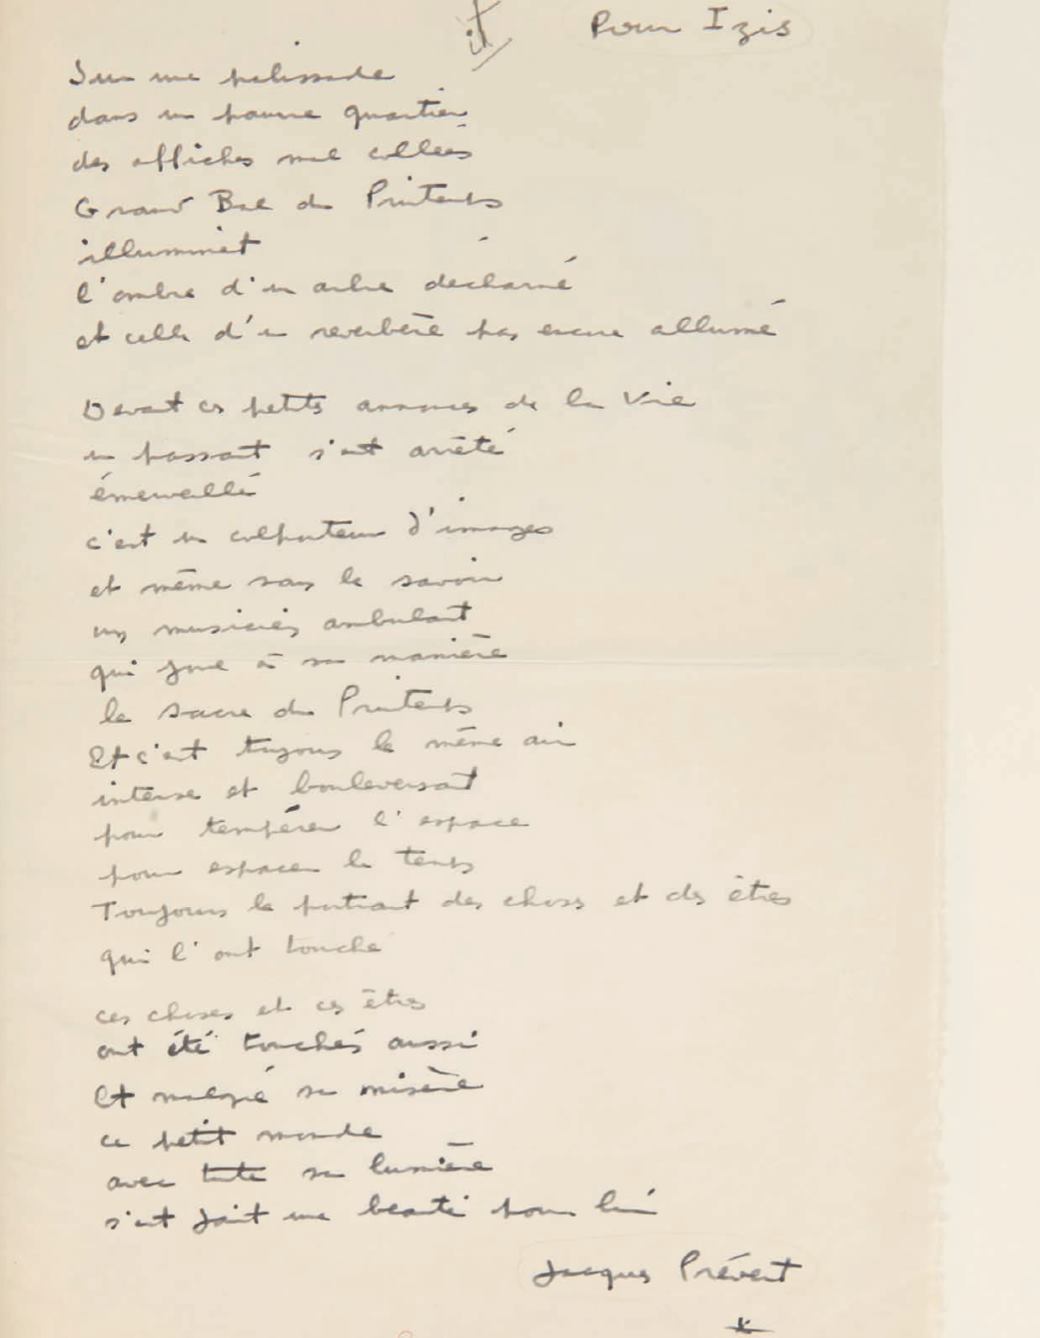 it Pour Izis
Sur une palissade
dans un pauvre quartier
des affiches mal collées
Grand Bal du Printemps
illuminent
l'ombre d'un arbre décharné
et celle d'un reverbère pas encore allumé
Devant ces petites annonces de la Vie
un passant s'est arrêté
émerveillé
c'est un colporteur d'images
et même sans le savoir
un musicien ambulant
qui joue à sa manière
le sacre du Printemps
Et c'est toujours le même air
intense et bouleversant
pour tempérer l'espace
pour espacer le temps
Toujours le portrait des choses et des êtres
qui l'ont touché
ces choses et ces êtres
ont été touchés aussi
Et malgré sa misère
ce petit monde
avec toute sa lumière
s'est fait une beauté pour lui
Jacques Prévert